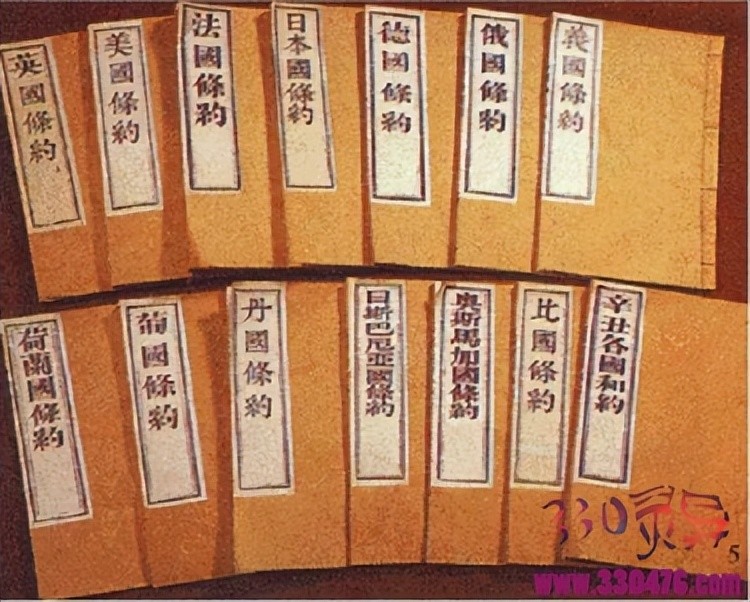 英國條約
美國條約
法國條約
日本國條約
德國條約
俄國條約
義國條約
荷蘭國條約
葡國條約
丹國條約
日斯巴尼亞國條約
奧斯馬加國條約
比國條約
辛丑各國和約
330灵异
5
www.330476.com